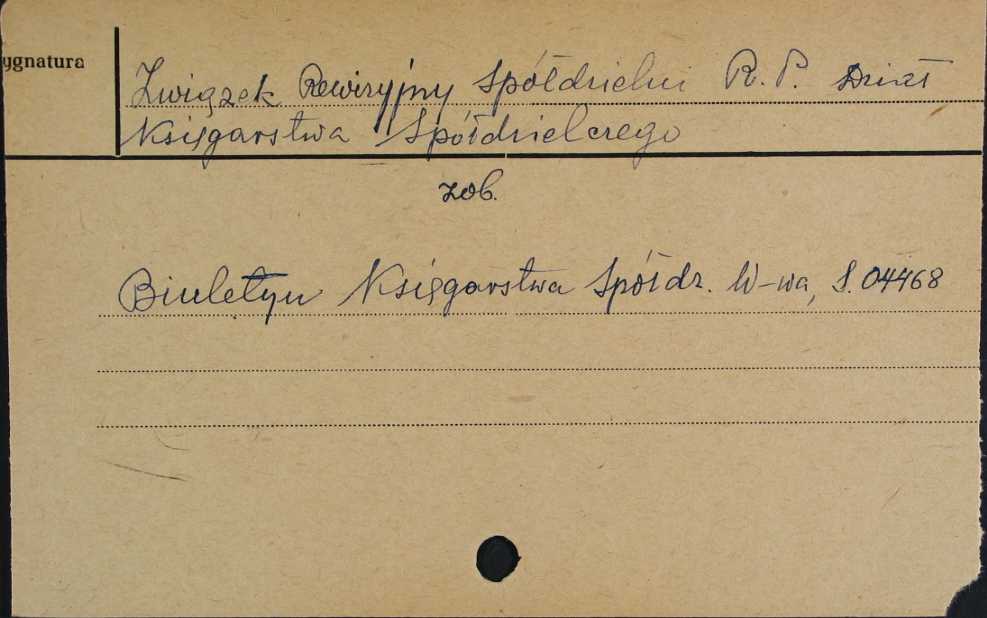 ygnatura
Związek Rewizyjny Spółdzielni R.P. Dział
Księgarstwa Spółdzielczego
zob.
Biuletyn Księgarstwa Spółdz. W-wa, S. 04468